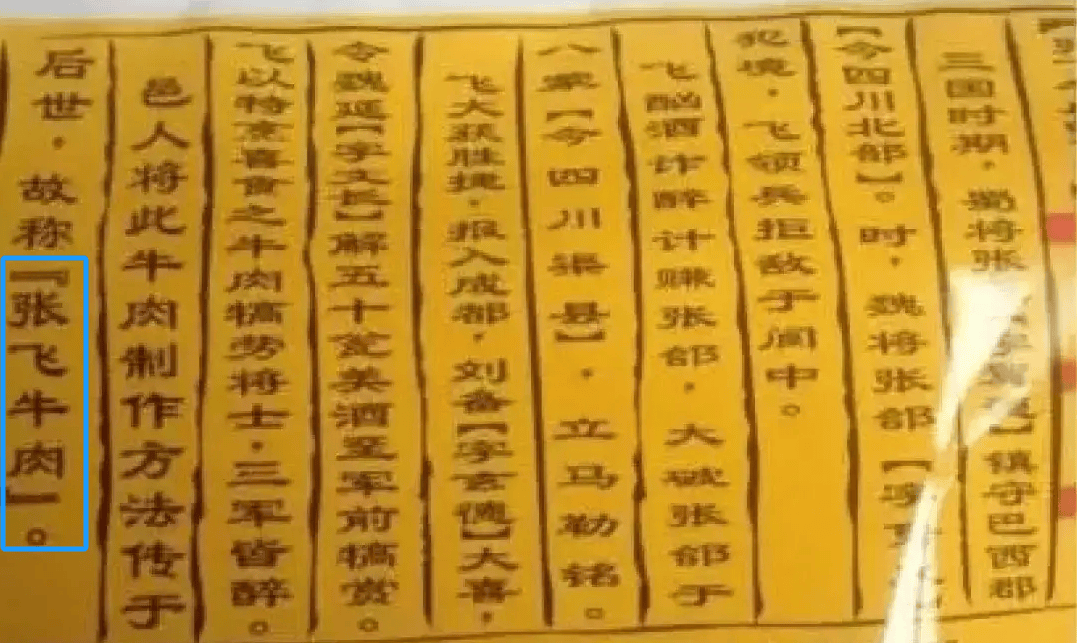 三国时期，蜀将张】镇守巴西郡
【今四川北部】。时，魏将张郃【字
犯境，飞领兵拒敌于阆中。
飞酗酒诈醉计赚张郃，大破张郃于
八蒙【今四川渠县】，立马勒铭。
飞大获胜捷，报入成都，刘备【字玄德】大喜，
令魏延【字文长】解五十瓮美酒至军前犒赏。
飞以特烹喜食之牛肉犒劳将士，三军皆醉。
邑人将此牛肉制作方法传于
后世，故称『张飞牛肉』。